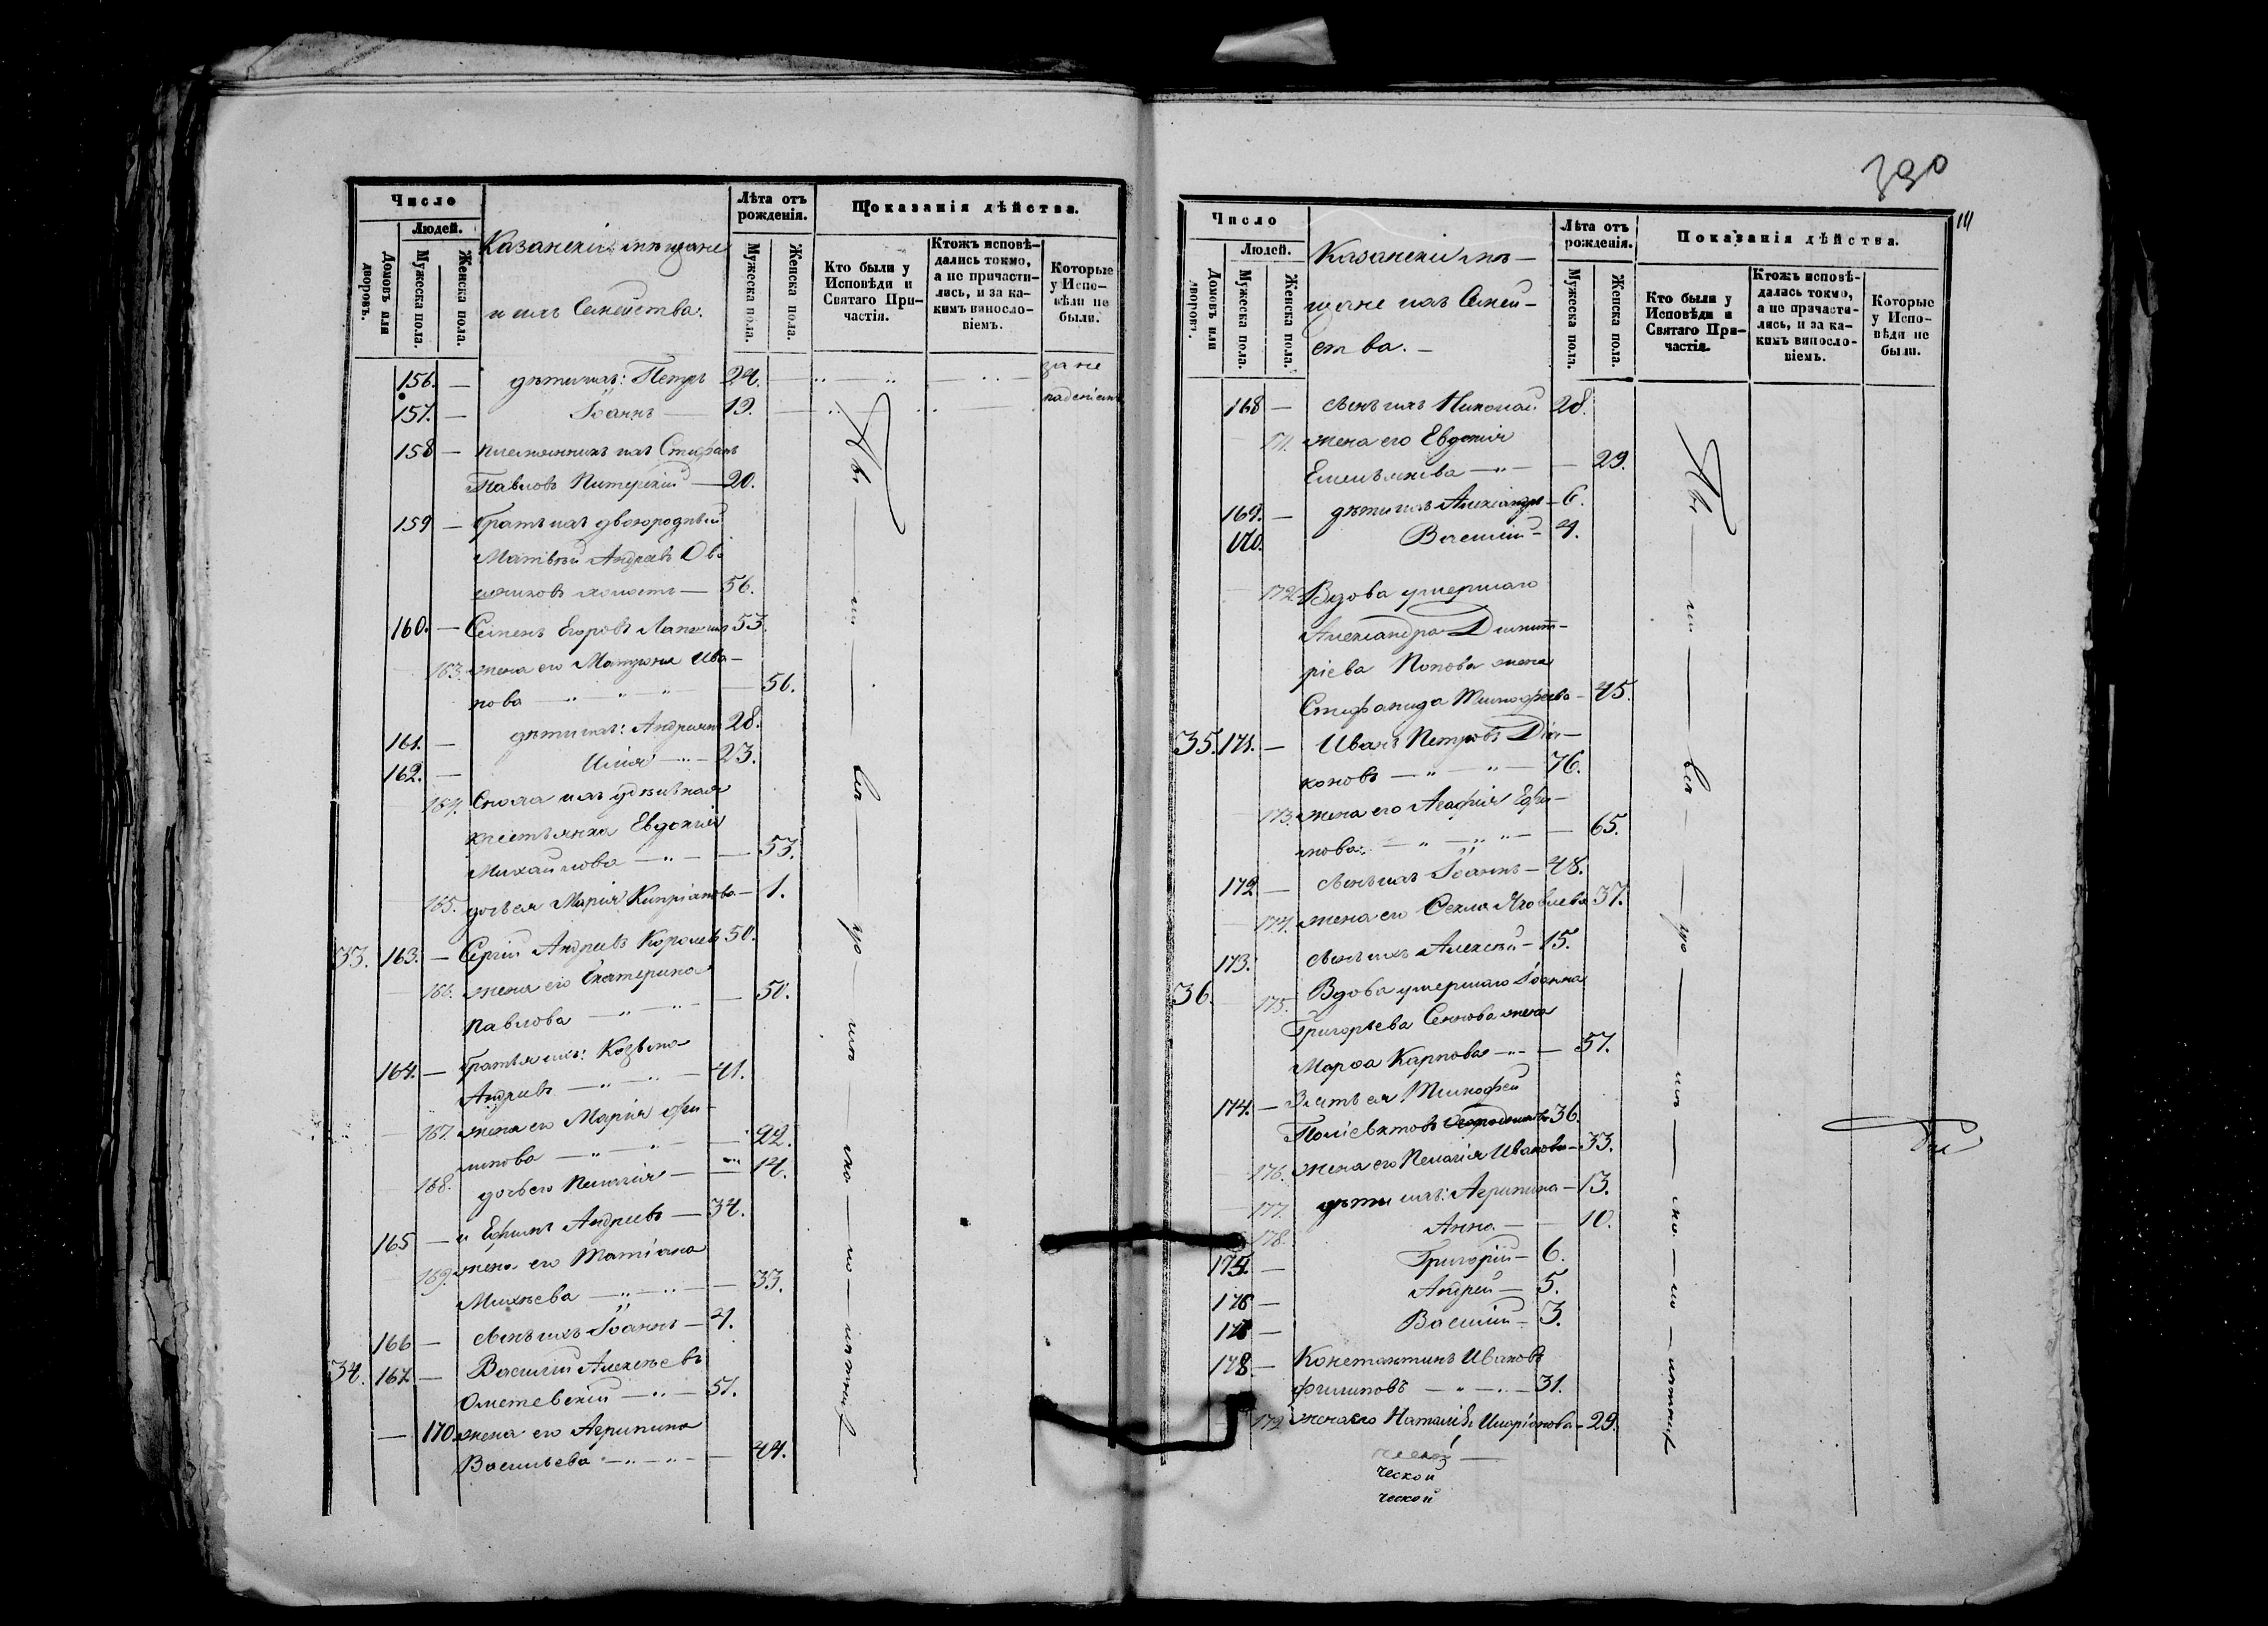 Число
Людей.
Домовъ или дворовъ.
Мужеска пола.
Женска пола.
Казанскіе мѣщане
и ихъ Семейства.
Лѣта отъ рожденія.
Мужеска пола.
Женска пола.
Показанія дѣйства.
Кто были у Исповѣди и Святаго Причастія.
Ктожъ исповѣдались токмо, а не причастились, и за какимъ винословіемъ.
Которые у Исповѣди не были.
156. — дѣти ихъ: Петръ 24. за не
157. — Іоаннъ — 19.
158 — племянникъ ихъ Стефанъ
Павловъ Питерскій — 20.
159 — братъ ихъ двоюродный
Матвѣй Андреевъ
холостъ — 56.
160. — Семенъ Егоровъ 53.
163. жена его Матрона Ива-
нова — 56.
161. — дѣти ихъ: Андреянъ 28.
162. — Илія — 23.
164. Сноха ихъ удѣльная
крестьянка Евдокія
Михайлова — 53.
165. дочь ея Марія Кипріанова — 1.
33. 163. — Сергій Андреевъ Королевъ 50.
166. жена его Екатерина
Павлова — 50.
164. — братья ихъ: Козьма
Андреевъ — 41.
167. жена его Марія Фи-
липова — 22.
168. дочь его Пелагія — 14.
165 — и Ефимъ Андреевъ — 34.
169. жена его Татіана
Михѣева — 33.
166 — сынъ ихъ Іоаннъ — 4.
34. 167 — Василій Алексѣевъ
Ометевскій — 51.
— 170. жена его Агрипина
Васильева — 44.
390
111
Число
Людей.
Домовъ или дворовъ.
Мужеска пола.
Женска пола.
Казанскіе мѣ-
щане ихъ Семей-
ства. —
Лѣта отъ рожденія.
Мужеска пола.
Женска пола.
Показанія дѣйства.
Кто были у Исповѣди и Святаго Причастія.
Ктожъ исповѣдались токмо, а не причастились, и за какимъ винословіемъ.
Которые у Исповѣди не были.
168 — сынъ ихъ Николай 28.
171. жена его Евдокія
Емельянова — 29.
169. — дѣти ихъ Александръ — 6.
170. Василій — 4.
172. Вдова умершаго
Александра Димит-
ріева Попова жена
Стефанида Тимофеева — 45.
35. 171. — Иванъ Петровъ Діа-
коновъ — 76.
173. жена его Агафія Ефи-
мова — 65.
172 — сынъ ихъ Іоаннъ — 48.
174. жена его Ѳекла Яковлева 37.
173. сынъ ихъ Алексѣй — 15.
36. 175. Вдова умершаго Іоанна
Григорьева жена
Марѳа Карпова — 57.
174. — Зять ея Тимофей
Поліевктовъ 36.
176. жена его Пелагія Иванова — 33.
177. дѣти ихъ: Агрипина — 13.
178. Анна — 10.
175. — Григорій — 6.
176 — Андрей — 5.
Василій — 3.
178 — Константинъ Ивановъ
Филиповъ — 31.
179. жена его Наталія Иларіонова — 29.
ческой
ческой